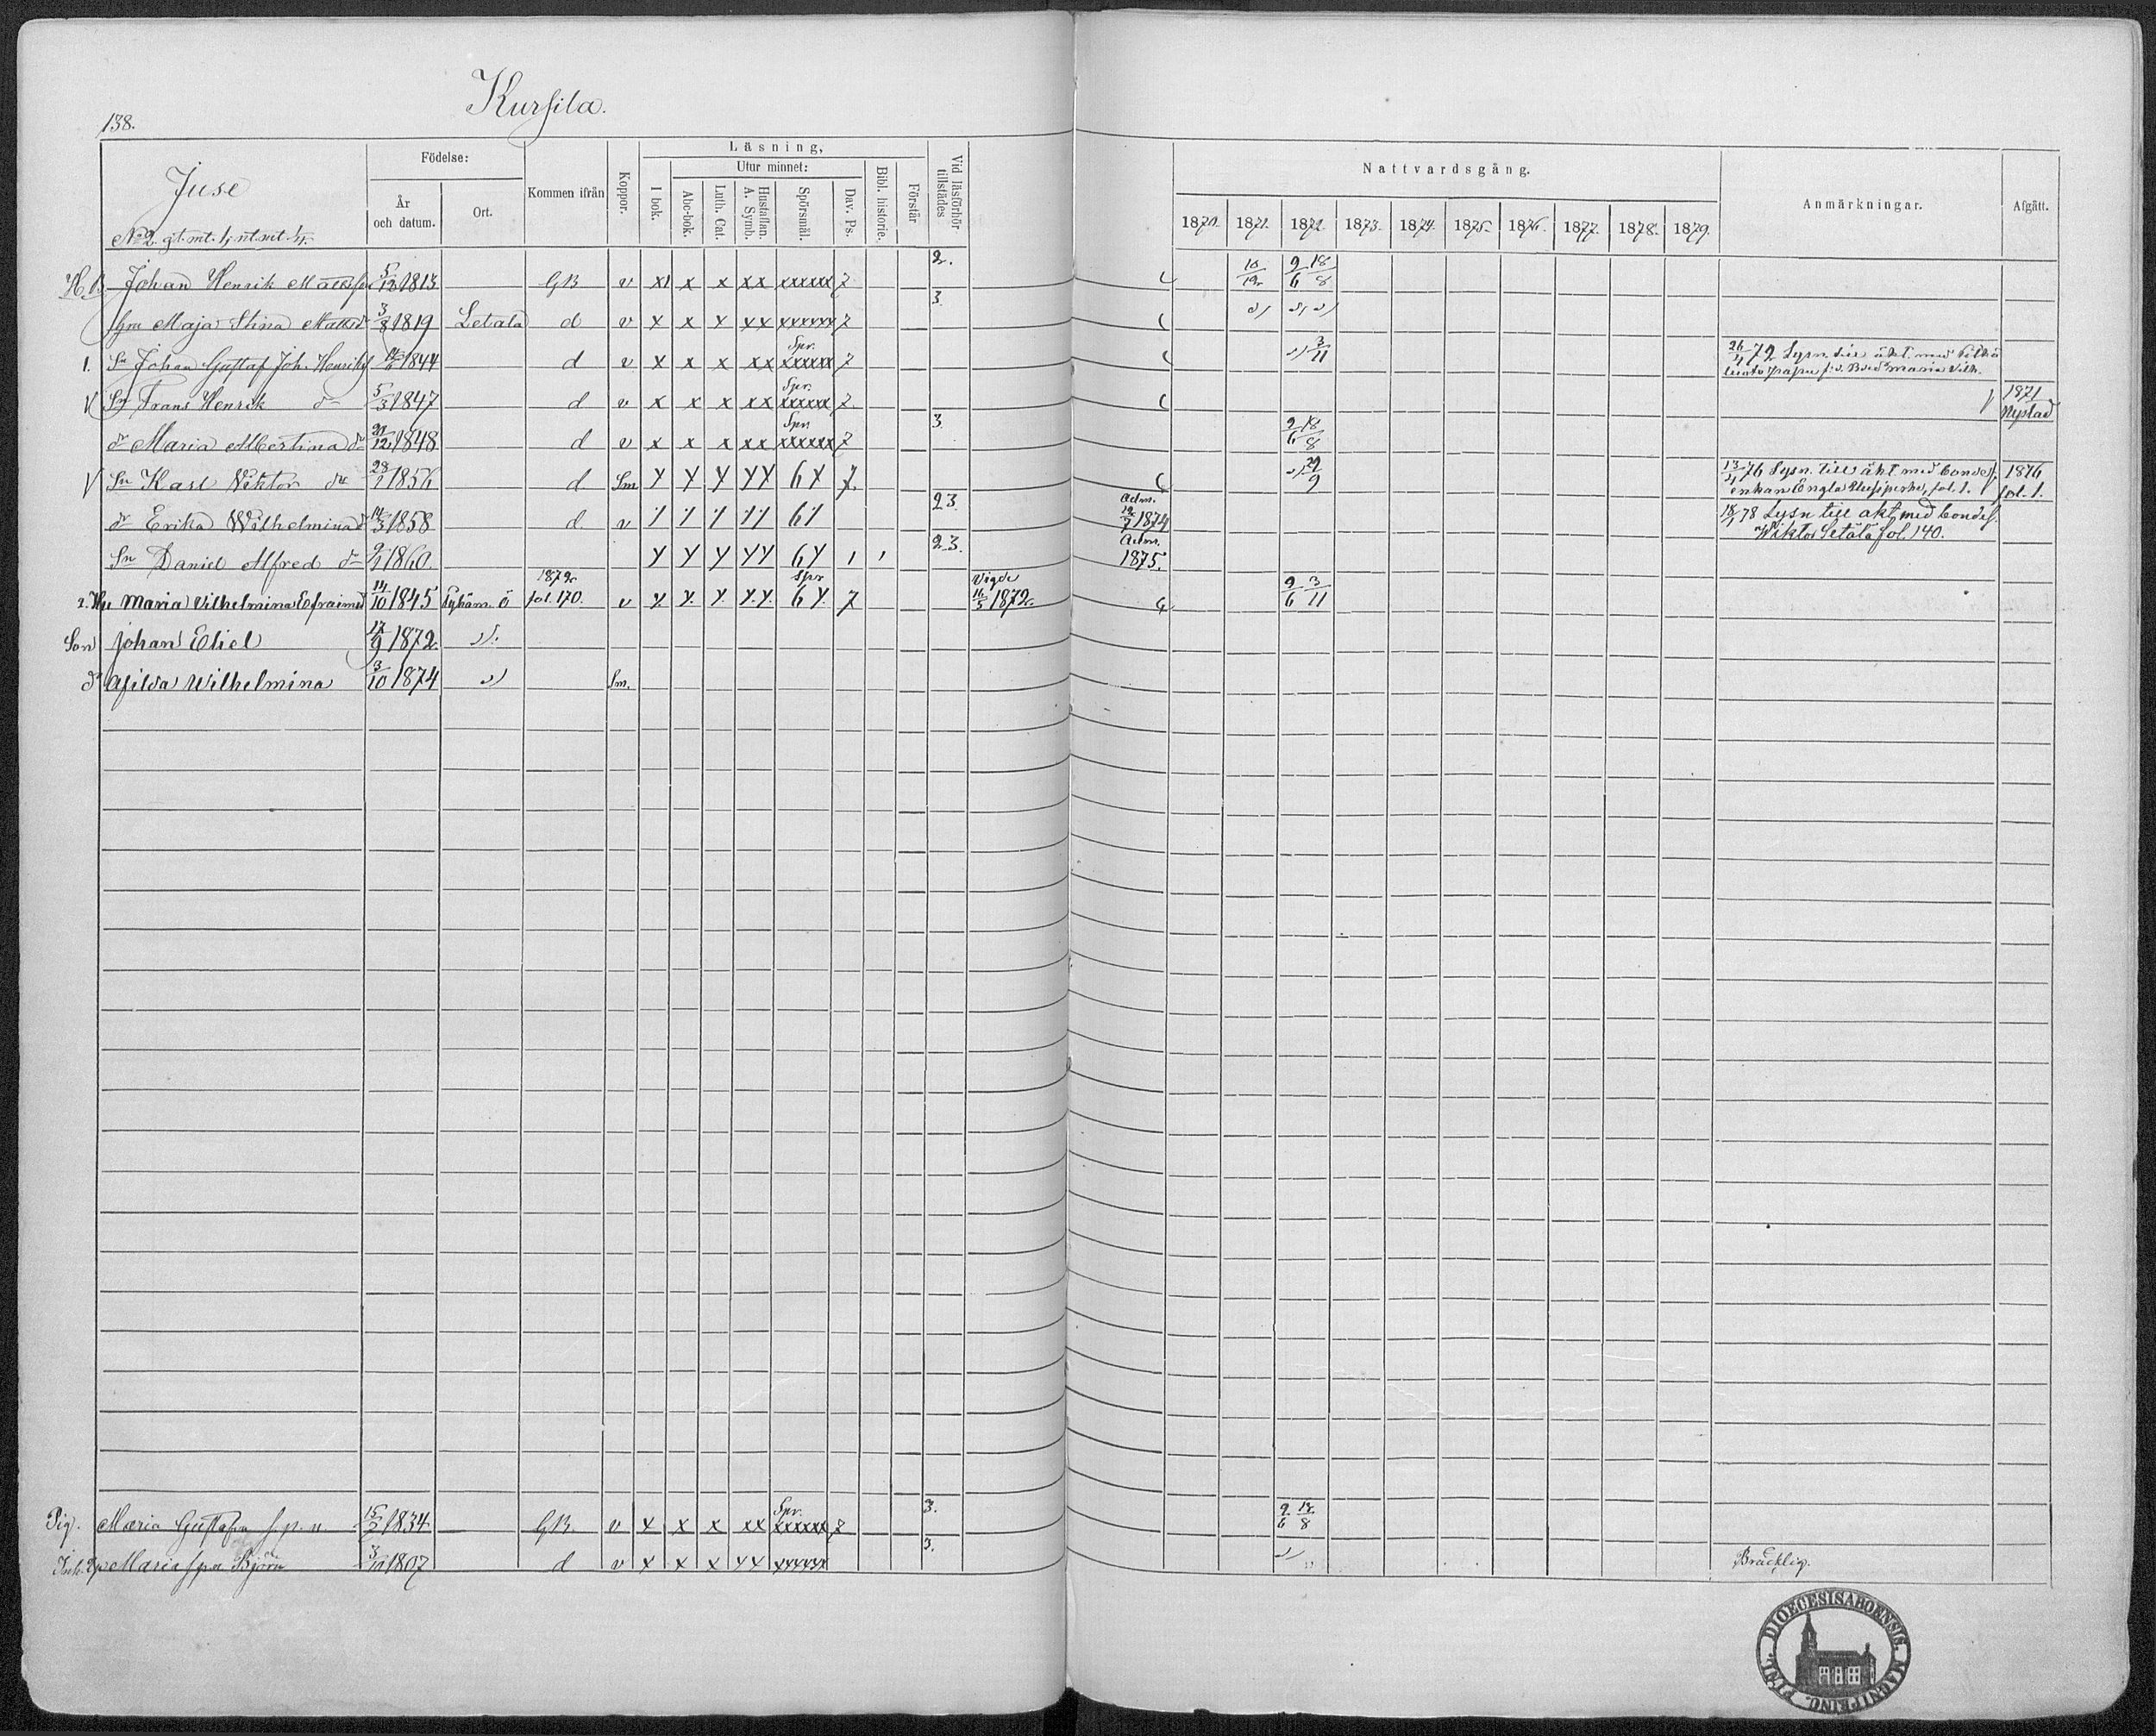 138.
Kursila.
Juse
No 2. gt. mt. 1/4 nt. mt. 1/4.
Födelse:
År och datum.
Ort.
Kommen ifrån
Koppor.
Läsning,
Utur minnet:
I bok.
Abc-bok.
Luth. Cat.
Hustaflan. A. Symb.
Spörsmål.
Dav. Ps.
Bibl. historie.
Förstår
Vid läsförhör tillstädes
Nattvardsgång.
1870. 1871. 1872. 1873. 1874. 1875. 1876. 1877. 1878. 1879.
Anmärkningar.
Afgått.
Johan Henrik Mattsson 5/12 1813 GB v x x x xx xxxxxx 7 2. 10/12 9/6 18/8
Maja Stina Mattsdr 3/8 1819 Letala d v x x x xx xxxxxx 7 3.
1. Sn Johan Gustaf Joh. Henriks 1844 d v x x x xx Spr. xxxxxx 7 3/11 26/4 72 Lysn. till äkt. med
Maria Vilh.
Sn Frans Henrik d:o 5/3 1847 d v x x x xx Spr. xxxxxx 7 1871 Nystad
dr Maria Albertina d:o 21/12 1848 d v x x x xx Spr. xxxxxx 7 3. 9/6 18/8
Sn Karl Viktor d:o 1856 d Sm x x x xx 6x 7. 29/9 13/4 76 Lysn. till äkt med bondes 1876
enkan Engla fol. 1. fol. 1.
dr Erika Wilhelmina d:o 14/3 1858 d v 6 23. Adm. 12/7 1874 18/1 78 Lysn till äkt med bondes.
Wiktor Setälä fol. 140.
Sn Daniel Alfred d:o 1860 x x x xx 6x 1 1 23. Adm. 1875.
2. Hu Maria Vilhelmina Efraimsd 14/10 1845 Pyhäm. ö 1872 fol. 170. v x x x xx Spr 6x 7 Vigde 16/5 1872. 9/6 3/11
Son Johan Eliel 17/9 1872
dr Afilda Wilhelmina 3/10 1874 Sm.
Pig. Maria Gustafva 15/2 1834 GB v x x x xx Spr. xxxxxx 7 3. 9/6 18/8
Maria Björn 3/10 1807 d v x x x xx xxxxxx 3. Bräcklig.
DIOECESIS ABOENSIS. MAGNI PRINC. FINL.